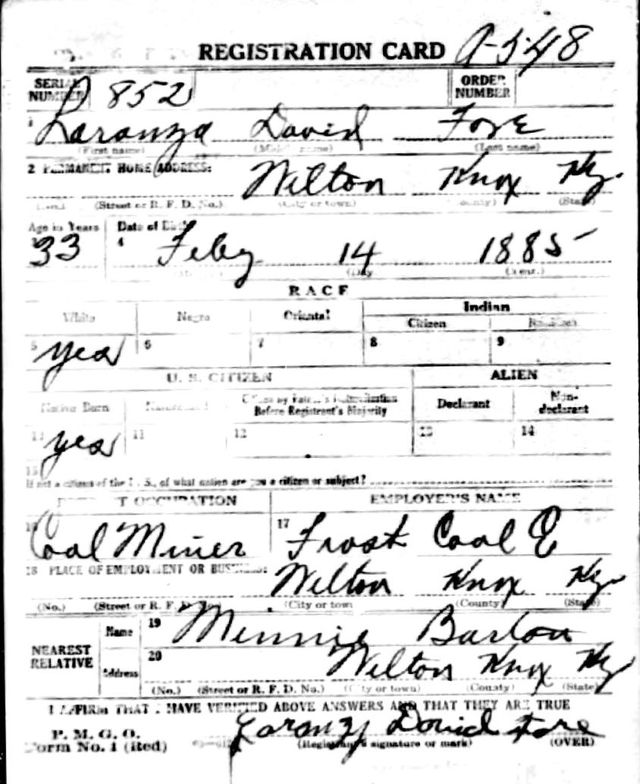 REGISTRATION CARD A-548
SERIAL NUMBER 852 ORDER NUMBER
1 Laranza David Fore
(First name) (Middle name) (Last name)
2 PERMANENT HOME ADDRESS: Wilton Knox Ky.
(Street or R. F. D. No.) (City or town) (County) (State)
Age in Years Date of Birth
33 4 Feby 14 1885
(Day (Year.)
RACE
White Negro Oriental Indian
Citizen
5 yes 6 7 8 9
U. S. CITIZEN ALIEN
Native Born Citizen by Father's Naturalization Before Registrant's Majority Declarant Non-declarant
yes 11 12 13 14
15
If not a citizen of the U. S., of what nation are you a citizen or subject?
PRESENT OCCUPATION EMPLOYER'S NAME
16 Coal Miner 17 Frost Coal C
18 PLACE OF EMPLOYMENT OR BUSINESS: Wilton Knox Ky.
(No.) (Street or R. F. D. No.) (City or town (County) (State)
NEAREST RELATIVE Name 19 Minnie
Address 20 Wilton Knox Ky
(No.) (Street or R. F. D. No.) (City or town) (County) (State)
I AFFIRM THAT I HAVE VERIFIED ABOVE ANSWERS AND THAT THEY ARE TRUE
P. M. G. O.
Form No. 1 (Red) Laranza David Fore
(Registrant's signature or mark) (OVER)